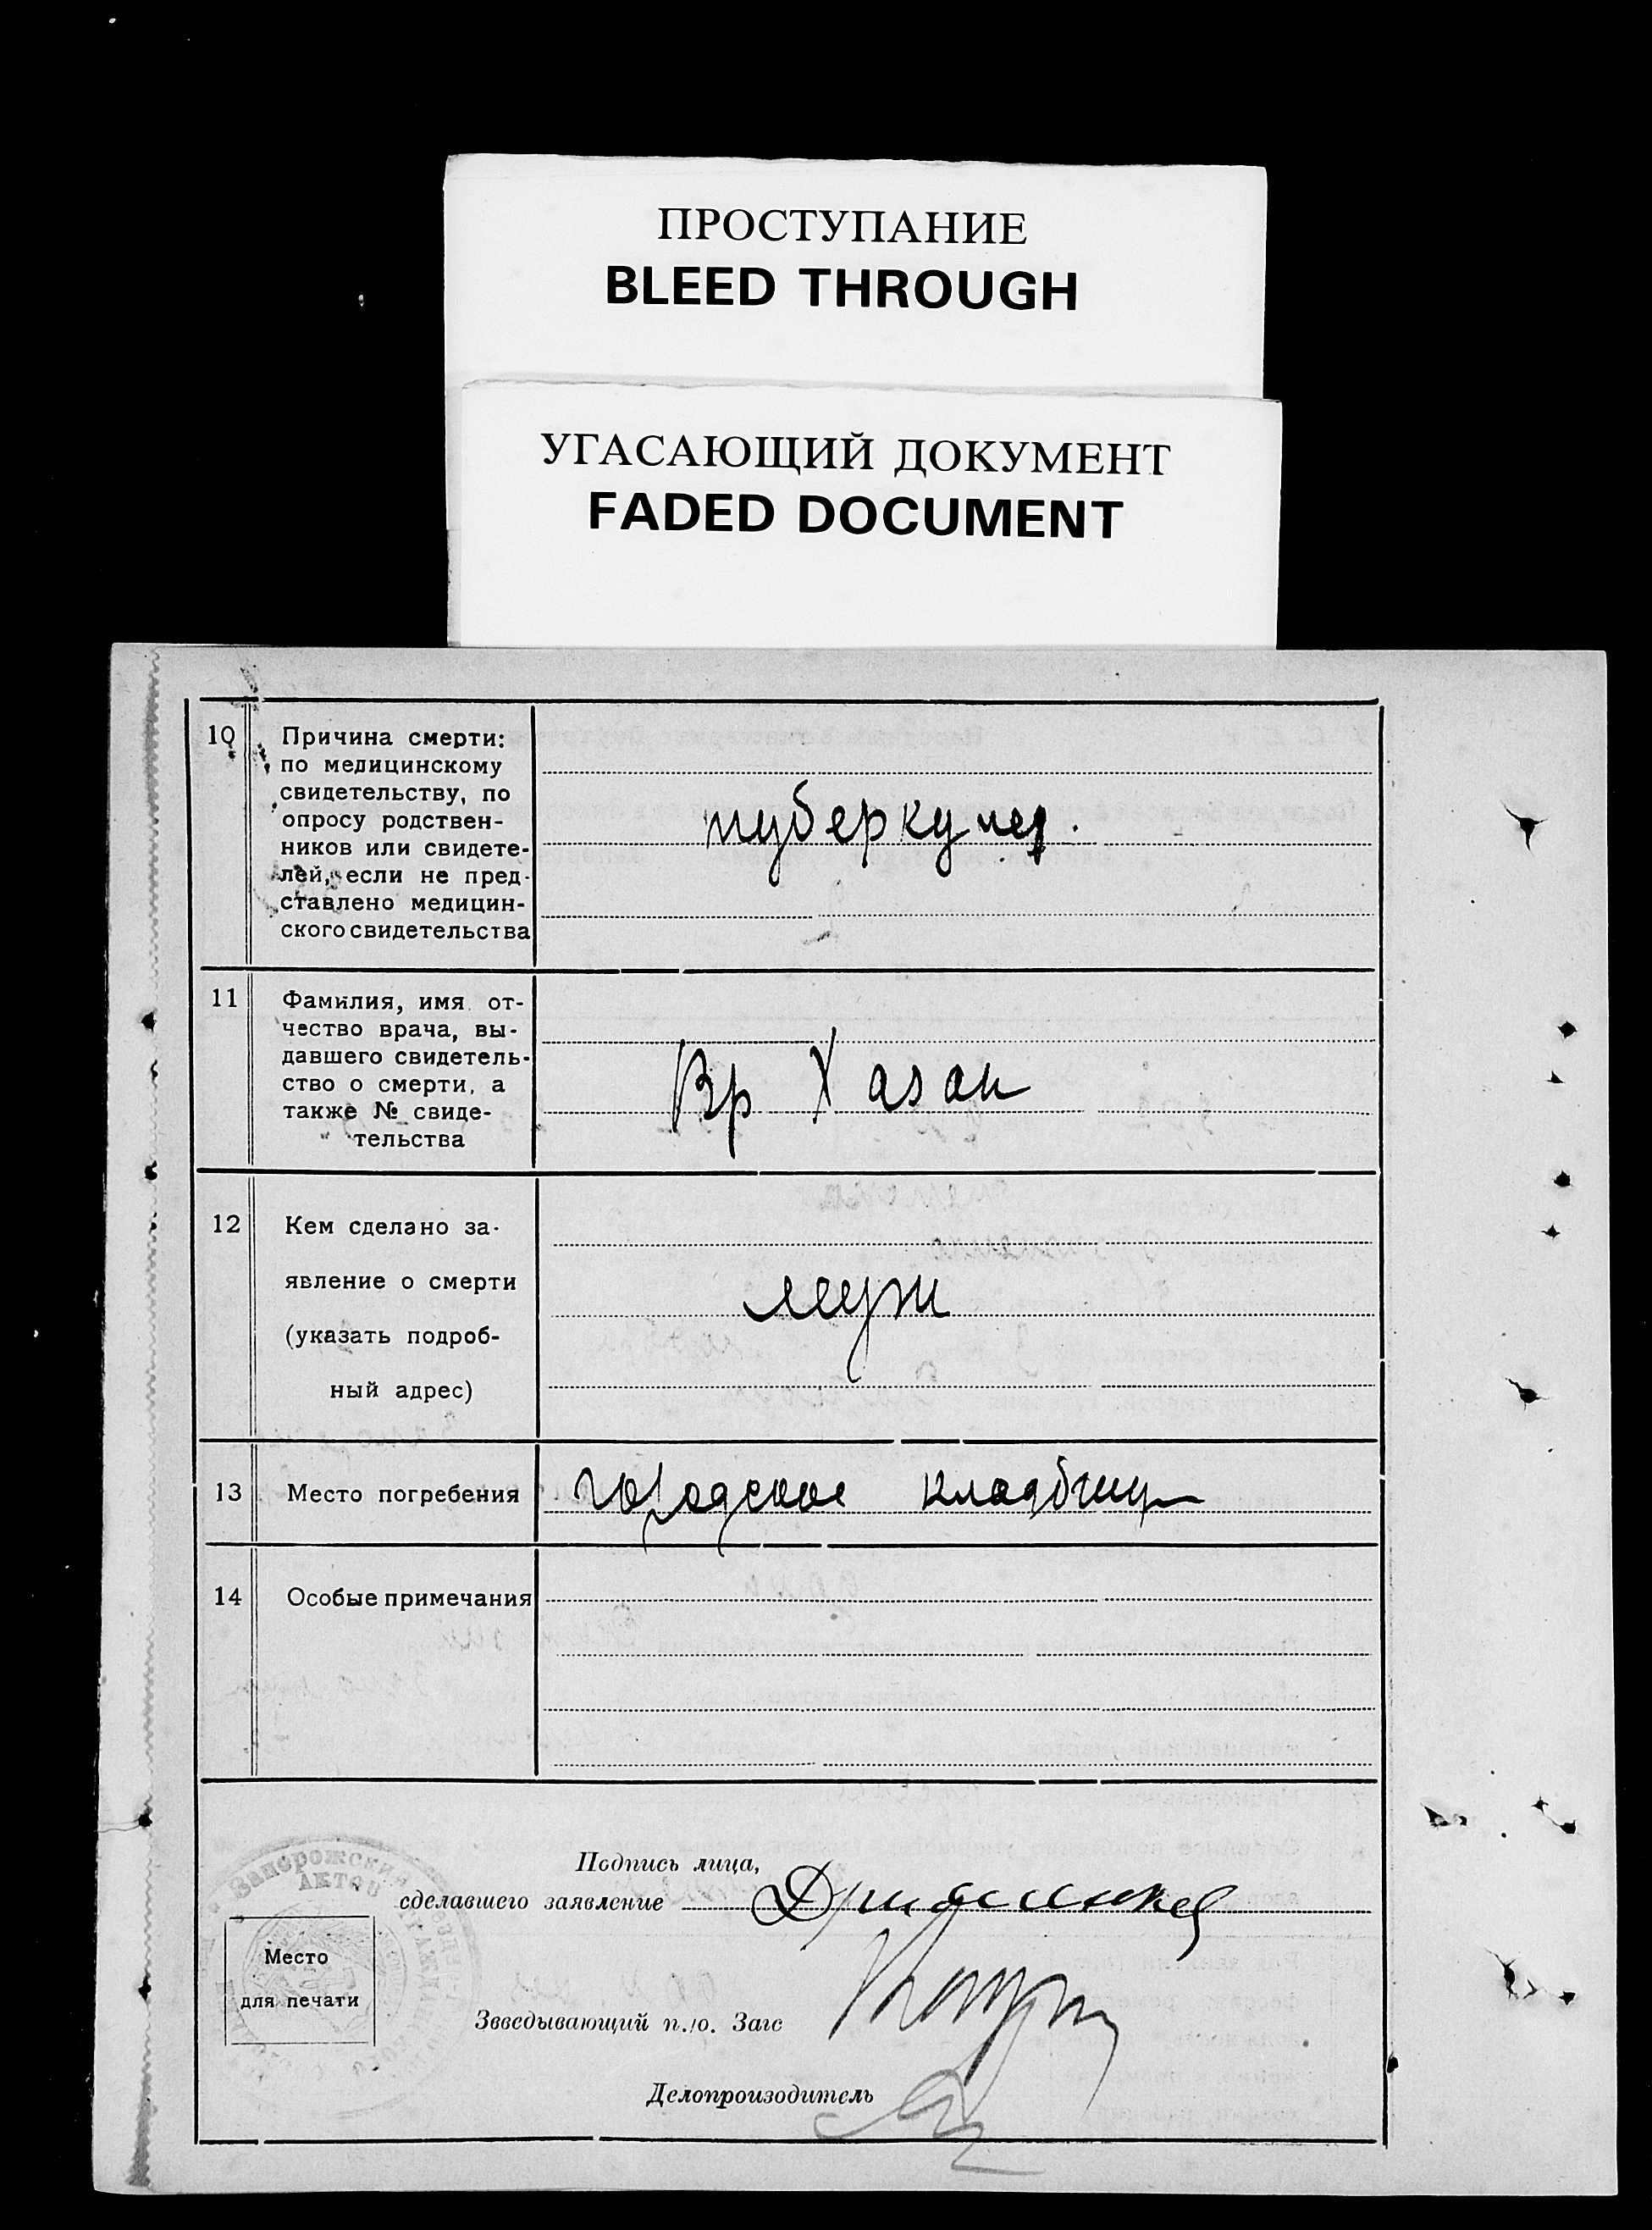 ПРОСТУПАНИЕ
BLEED THROUGH
УГАСАЮЩИЙ ДОКУМЕНТ
FADED DOCUMENT
10
Причина смерти:
по медицинскому
свидетельству, по
опросу родствен-
ников или свидете-
лей, если не пред-
ставлено медицин-
ского свидетельства
туберкулез.
11
Фамилия, имя от-
чество врача, вы-
давшего свидетель-
ство о смерти, а
также № свиде-
тельства
Вр Хазан
12
Кем сделано за-
явление о смерти
(указать подроб-
ный адрес)
муж
13
Место погребения
городское кладбище
14
Особые примечания
Подпись лица,
сделавшего заявление
Место
для печати
Зввсдывающий п./ю. Загс
Делопроизодитель
Запорожский
АКТОВ